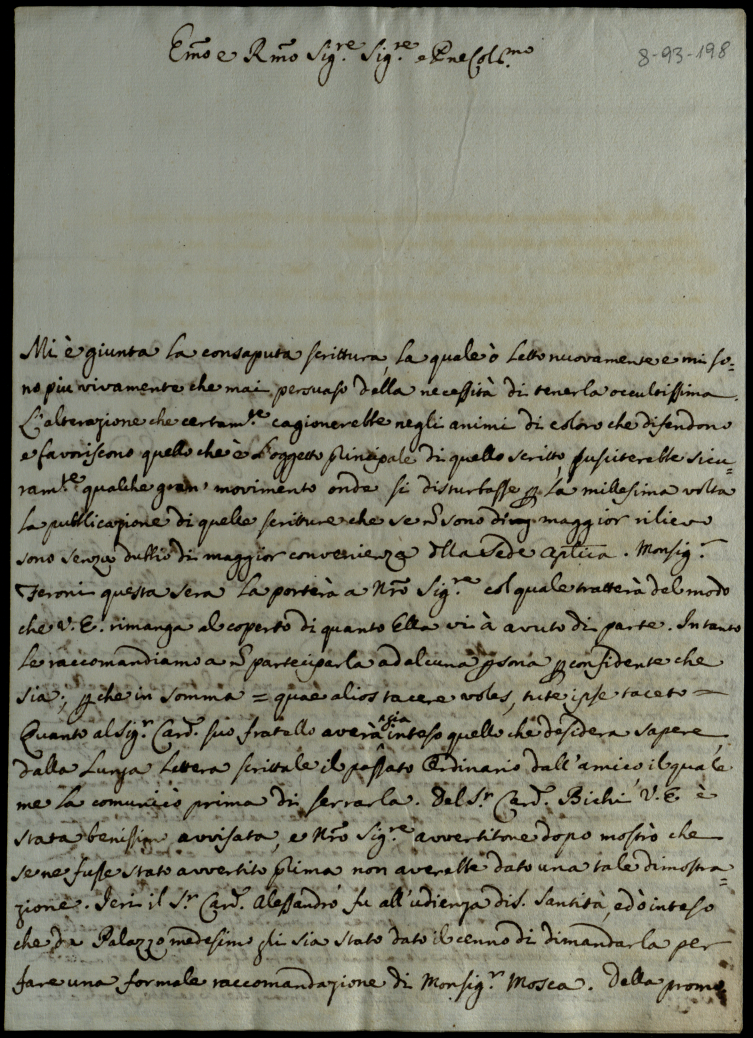 8-93-198
Em̃o e Rm̃o Sig.re Sig.re e Pne Col.mo
Mi è giunta la consaputa scrittura, la quale ò letto nuovamente e mi so=
no piu vivamente che mai persuaso della necessità di tenerla occultissima.
L'alterazione che certam.te cagionerebbe negli animi di coloro che difendono
e favoriscono quello che è l'oggetto principale di quello scritto, susciterebbe sicu=
ram.te qualche gran movimento onde si disturbasse p la millesima volta
la publicazione di quelle scritture che se ñ sono di maggior rilievo
sono senza dubbio di maggior convenienza dlla Sede Aplica. Monsig.r
Feroni questa sera la porterà a Nr̃o Sig.re col quale tratterà del modo
che V. E. rimanga al coperto di quanto Ella vi à avuto di parte. In tanto
le raccomandiamo a ñ participarla ad alcuna psona p confidente che
sia; pche in somma = quae alios tacere voles, tute ipse taceto =
Quanto al Sig.r Card. suo fratello averà già inteso quello che desidera sapere
dalla lunga lettera scrittale il passato Ordinario dall'amico, il quale
me la comunicò prima di serrarla. Del S.r Card. Bichi V. E. è
stata benissim avvisata, e Nr̃o Sig.re avvertitone dopo mostrò che
se ne fusse stato avvertito prima non averebbe dato una tale dimostra=
zione. Ieri il S.r Card. Alessandro fu all'udienza di S. Santità, ed ò inteso
che da Palazzo medesimo gli sia stato dato il cenno di dimandarla per
fare una formale raccomandazione di Monsig.r Mosca. Della promo